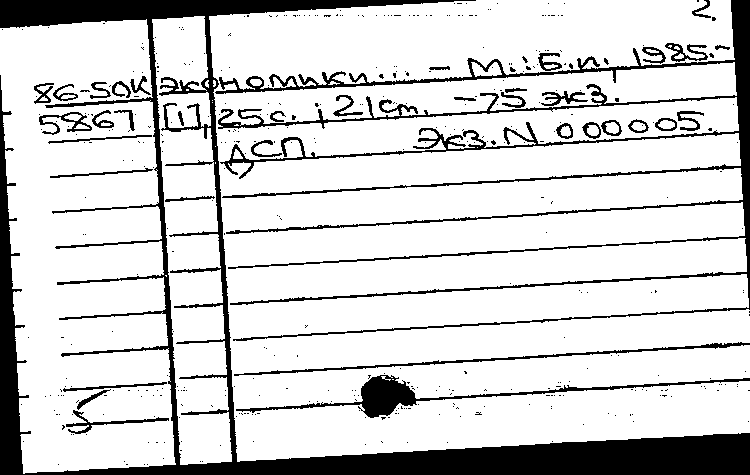 2
86-50К экономики... - М.: Б.и., 1985.-
5867 [1], 25 с. ; 21 см. - 75 экз.
ДСП. Экз. N 000005.
5